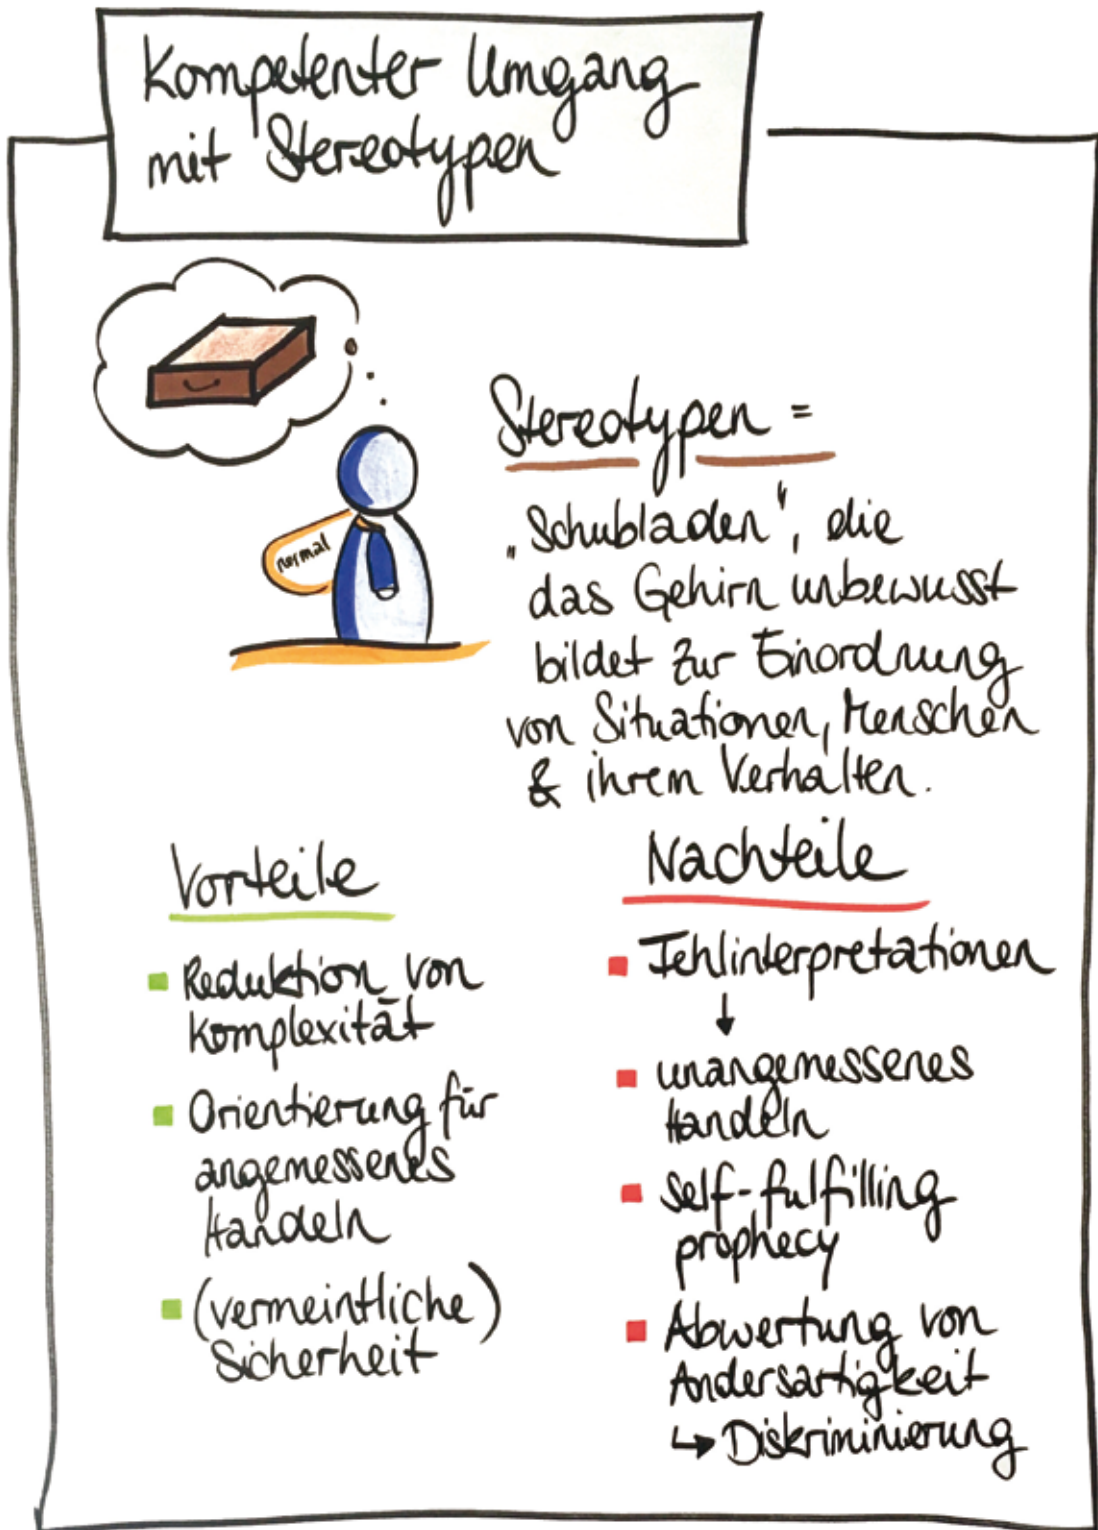 Kompetenter Umgang
mit Stereotypen
normal
Stereotypen =
„Schubladen", die
das Gehirn unbewusst
bildet zur Einordnung
von Situationen, Menschen
& ihrem Verhalten.
Vorteile
Reduktion von
Komplexität
Orientierung für
angemessenes
Handeln
(vermeintliche)
Sicherheit
Nachteile
Fehlinterpretationen
↓
unangemessenes
Handeln
self-fulfilling
prophecy
Abwertung von
Andersartigkeit
↳ Diskriminierung